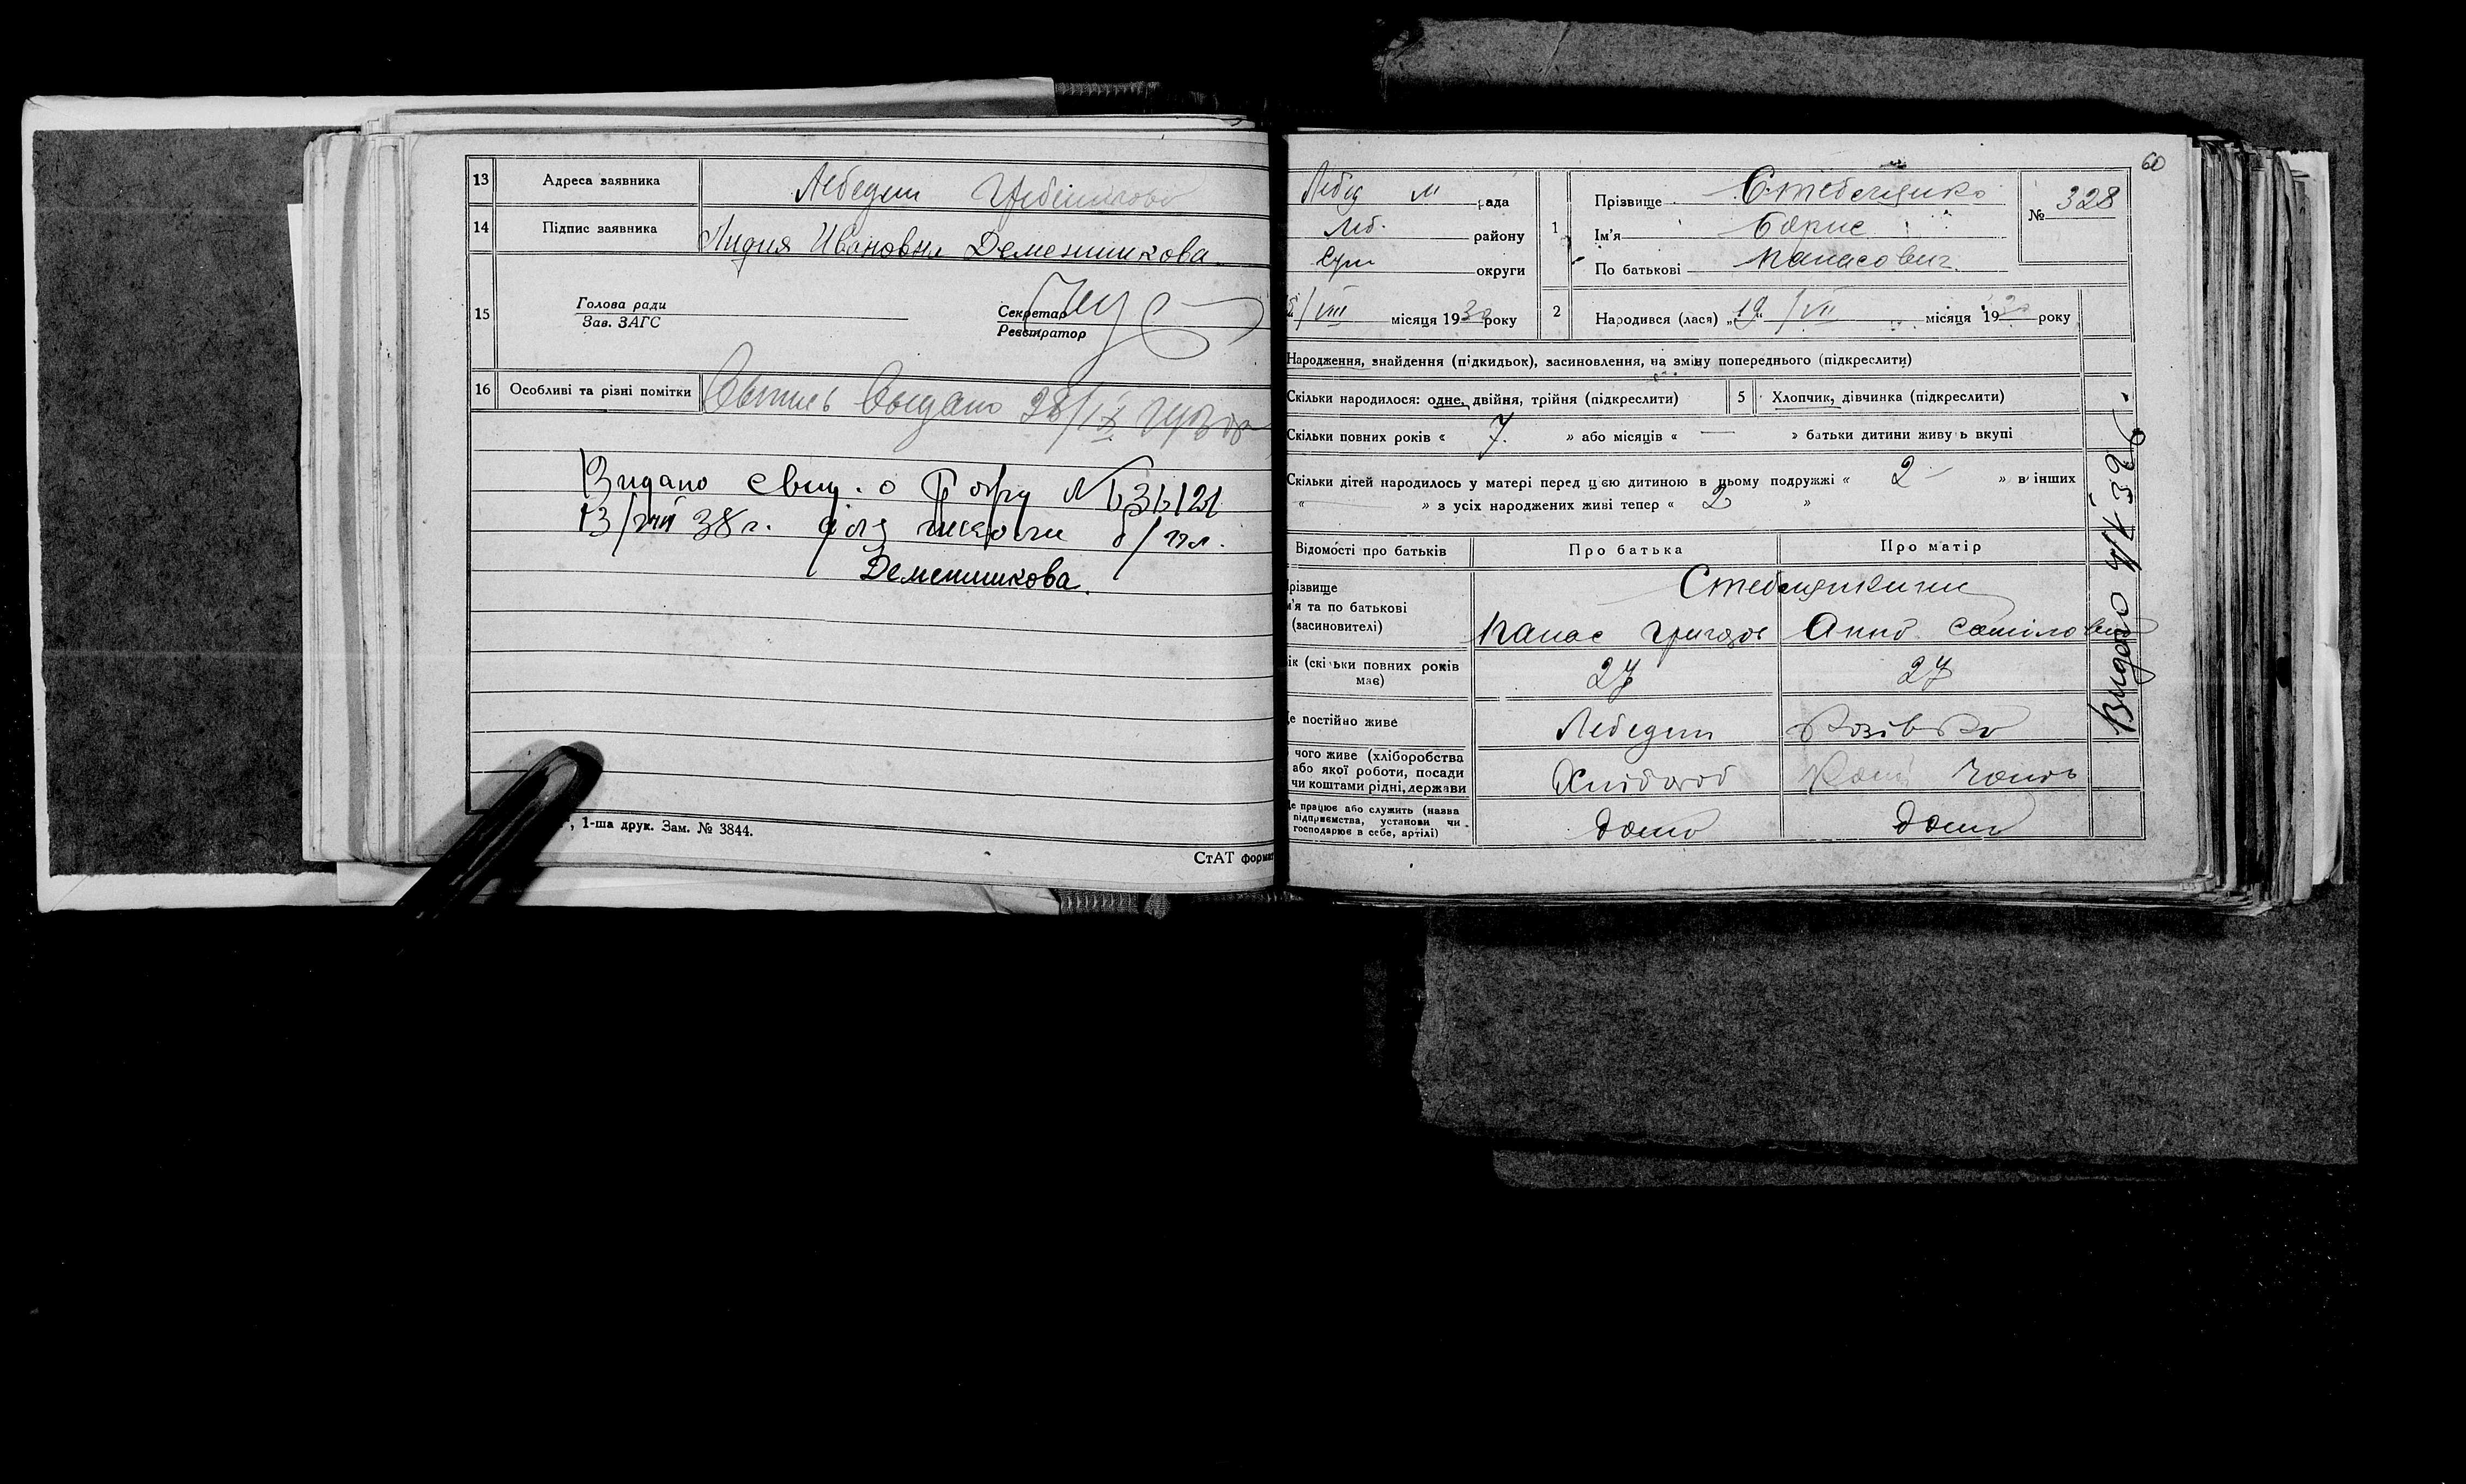 13 Адреса заявника Лебедин
14 Підпис заявника Лидия Ивановна Деменшикова
15 Голова ради
Зав. ЗАГС
Секретар
Реєстратор
16 Особливі та різні помітки Выпись выдана 28/IX
Видано свид. о
13/VIII 38 г. для
Деменшикова.
1-ша друк. Зам. № 3844.
СтАТ формат
60
Лебед м рада
Леб. району
Сум округи
/VIII місяця 1930 року
1 Прізвище Стеблянко
Ім'я Борис
По батькові Панасович
№ 328
2 Народився (лася) „19" /VII місяця 1930 року
Народження, знайдення (підкидьок), засиновлення, на зміну попереднього (підкреслити)
Скільки народилося: одне, двійня, трійня (підкреслити) 5 Хлопчик, дівчинка (підкреслити)
Скільки повних років « 7 » або місяців « — » батьки дитини живуть вкупі
Скільки дітей народилось у матері перед цією дитиною в цьому подружжі « 2 » в інших
« » з усіх народжених живі тепер « 2 »
Відомості про батьків Про батька Про матір
різвище
м'я та по батькові
(засиновителі)
Панас Григор Анна
ік (скільки повних років має) 27 27
е постійно живе Лебедин
чого живе (хліборобства
або якої роботи, посади
чи коштами рідні, держави
Хлібороб
е працює або служить (назва
підприємства, установи чи
господарює в себе, артілі)
дома дома
Видано